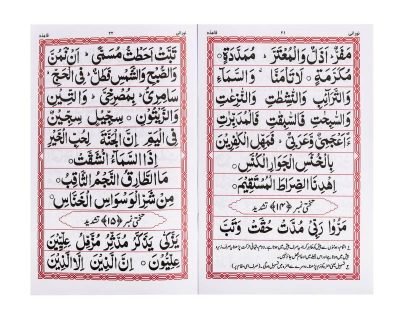 نورانی ۲۱ قاعدہ
مَفَرُّ اَذَلُّ وَالْمُعْتَرَّ مُمَدَّدَةٍ
مُكَرَّمَةٍ لَا تَأْمَنَّا وَالسَّمَآءِ
وَالتَّرَآئِبِ وَالنّٰشِطٰتِ وَالنّٰزِعٰتِ
وَالسّٰبِحٰتِ فَالسّٰبِقٰتِ فَالْمُدَبِّرٰتِ
ءَاَعْجَمِىٌّ وَّعَرَبِىٌّ فَمَهِّلِ الْكٰفِرِيْنَ
بِالْخُنَّسِ الْجَوَارِ الْكُنَّسِ
اِهْدِنَا الصِّرَاطَ الْمُسْتَقِيْمَ
تختی نمبر ﴿۱۴﴾ تشدید
مَرُّوْا رَبِّىْ مُدَّتْ حُقَّتْ وَتَبَّ
نورانی ۲۲ قاعدہ
تَبَّتْ اَحَطْتُّ مُسَمًّى اِنْ ظَنَّ
وَالصُّبْحِ وَالشَّمْسِ فِى الْحَجِّ
بِمُصْرِخِىَّ وَالتِّيْنِ
وَالزَّيْتُوْنِ سِجِّيْلٍ سِجِّيْنٍ
فِى الْيَمِّ اِنَّ الْجَنَّةَ لِحُبِّ الْخَيْرِ
اِذَا السَّمَآءُ انْشَقَّتْ
مَا الطَّارِقُ النَّجْمُ الثَّاقِبُ
مِنْ شَرِّ الْوَسْوَاسِ الْخَنَّاسِ
تختی نمبر ﴿۱۵﴾ تشدید
يَزَّكّٰى يَذَّكَّرُ مُدَّثِّرُ مُزَّمِّلُ عِلِّيِّيْنَ
عِلِّيُّوْنَ اِنَّ الَّذِيْنَ اِلَّا الَّذِيْنَ